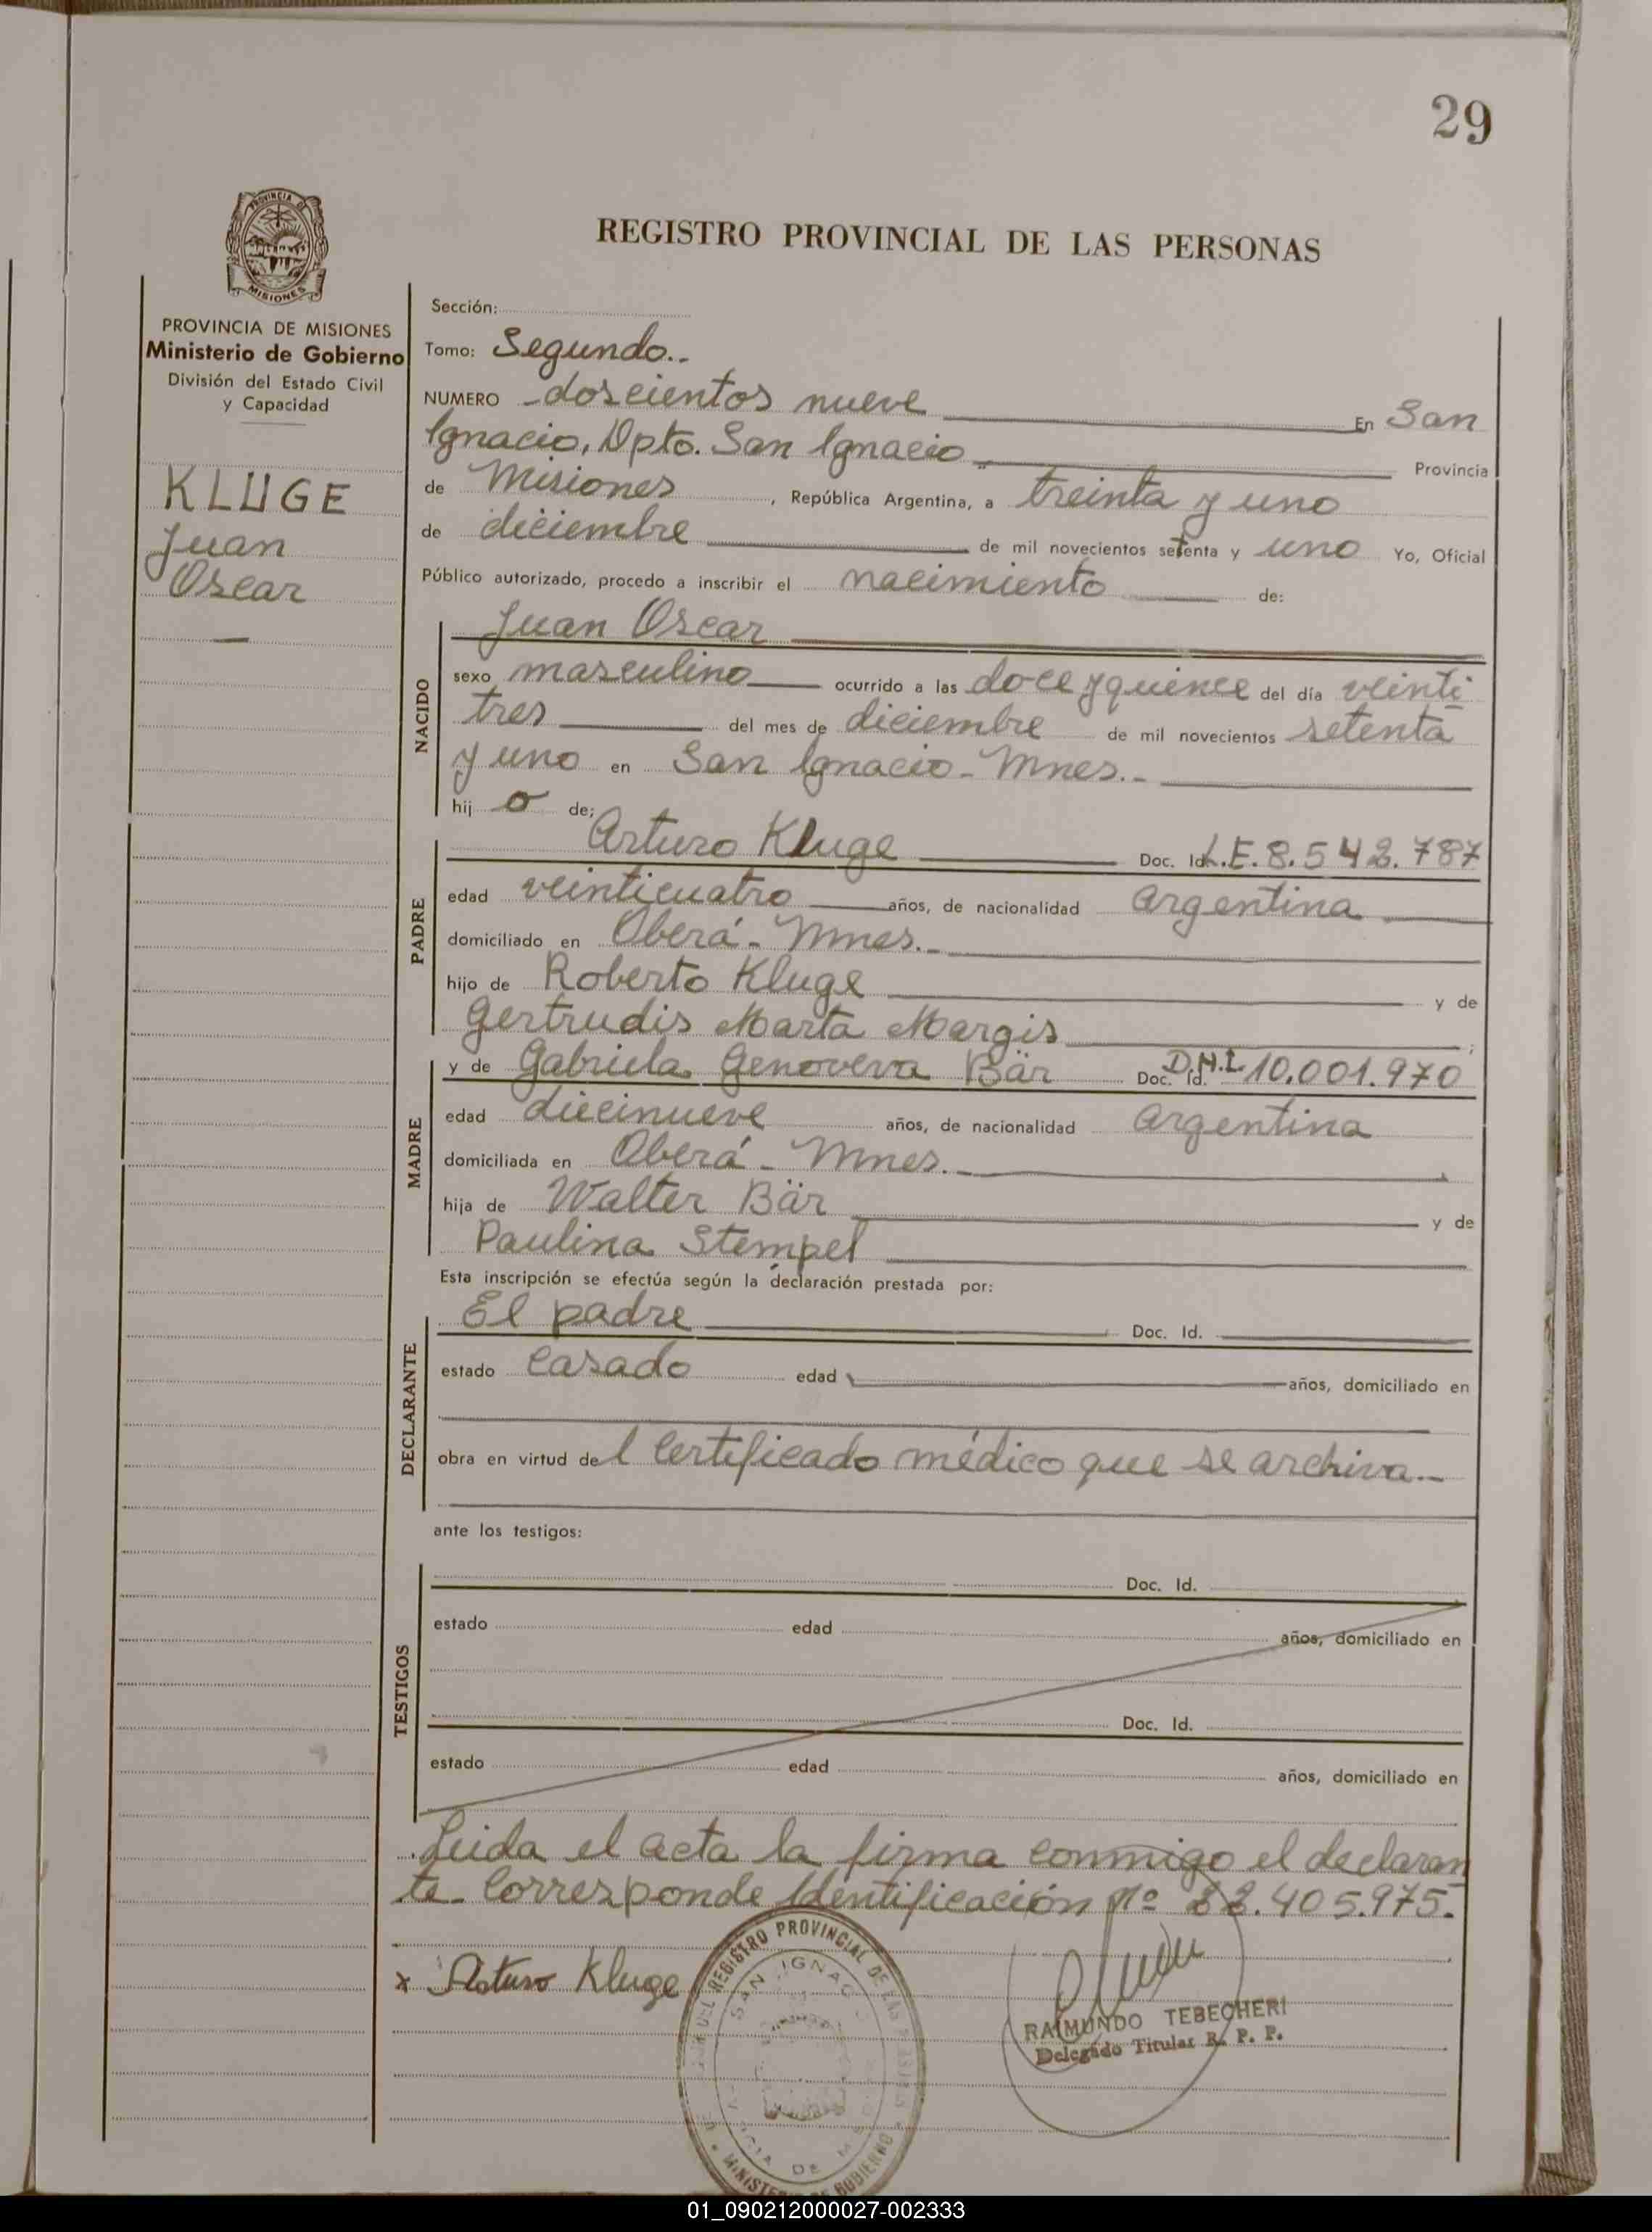 29
PROVINCIA DE
MISIONES
REGISTRO PROVINCIAL DE LAS PERSONAS
PROVINCIA DE MISIONES
Ministerio de Gobierno
División del Estado Civil
y Capacidad
KLUGE
Juan
Oscar
Sección:
Tomo: Segundo.-
NUMERO - doscientos nueve En San
Ignacio, Dpto. San Ignacio Provincia
de Misiones, República Argentina, a treinta y uno
de diciembre de mil novecientos setenta y uno Yo, Oficial
Público autorizado, procedo a inscribir el nacimiento de:
NACIDO
Juan Oscar
sexo masculino ocurrido a las doce y quince del día veinti
tres del mes de diciembre de mil novecientos setenta
y uno en San Ignacio - Mnes.-
hij o de;
PADRE
Arturo Kluge Doc. Id. L.E. 8.542.787
edad veinticuatro años, de nacionalidad argentina
domiciliado en Oberá - Mnes.-
hijo de Roberto Kluge y de
Gertrudis Marta Margis ;
MADRE
y de Gabriela Genoveva Bär Doc. Id. D.N.I. 10.001.970
edad diecinueve años, de nacionalidad argentina
domiciliada en Oberá - Mnes.-
hija de Walter Bär y de
Paulina Stempel
Esta inscripción se efectúa según la declaración prestada por:
DECLARANTE
El padre Doc. Id.
estado casado edad años, domiciliado en
obra en virtud del certificado médico que se archiva.-
ante los testigos:
TESTIGOS
Doc. Id.
estado edad años, domiciliado en
Doc. Id.
estado edad años, domiciliado en
Leida el acta la firma conmigo el declaran
te. Corresponde Identificación Nº 22.405.975.-
x Arturo Kluge
DEL REGISTRO PROVINCIAL DE LAS
SAN IGNACIO
MINISTERIO DE GOBIERNO
RAIMUNDO TEBECHERI
Delegado Titular R. P. P.
01_090212000027-002333